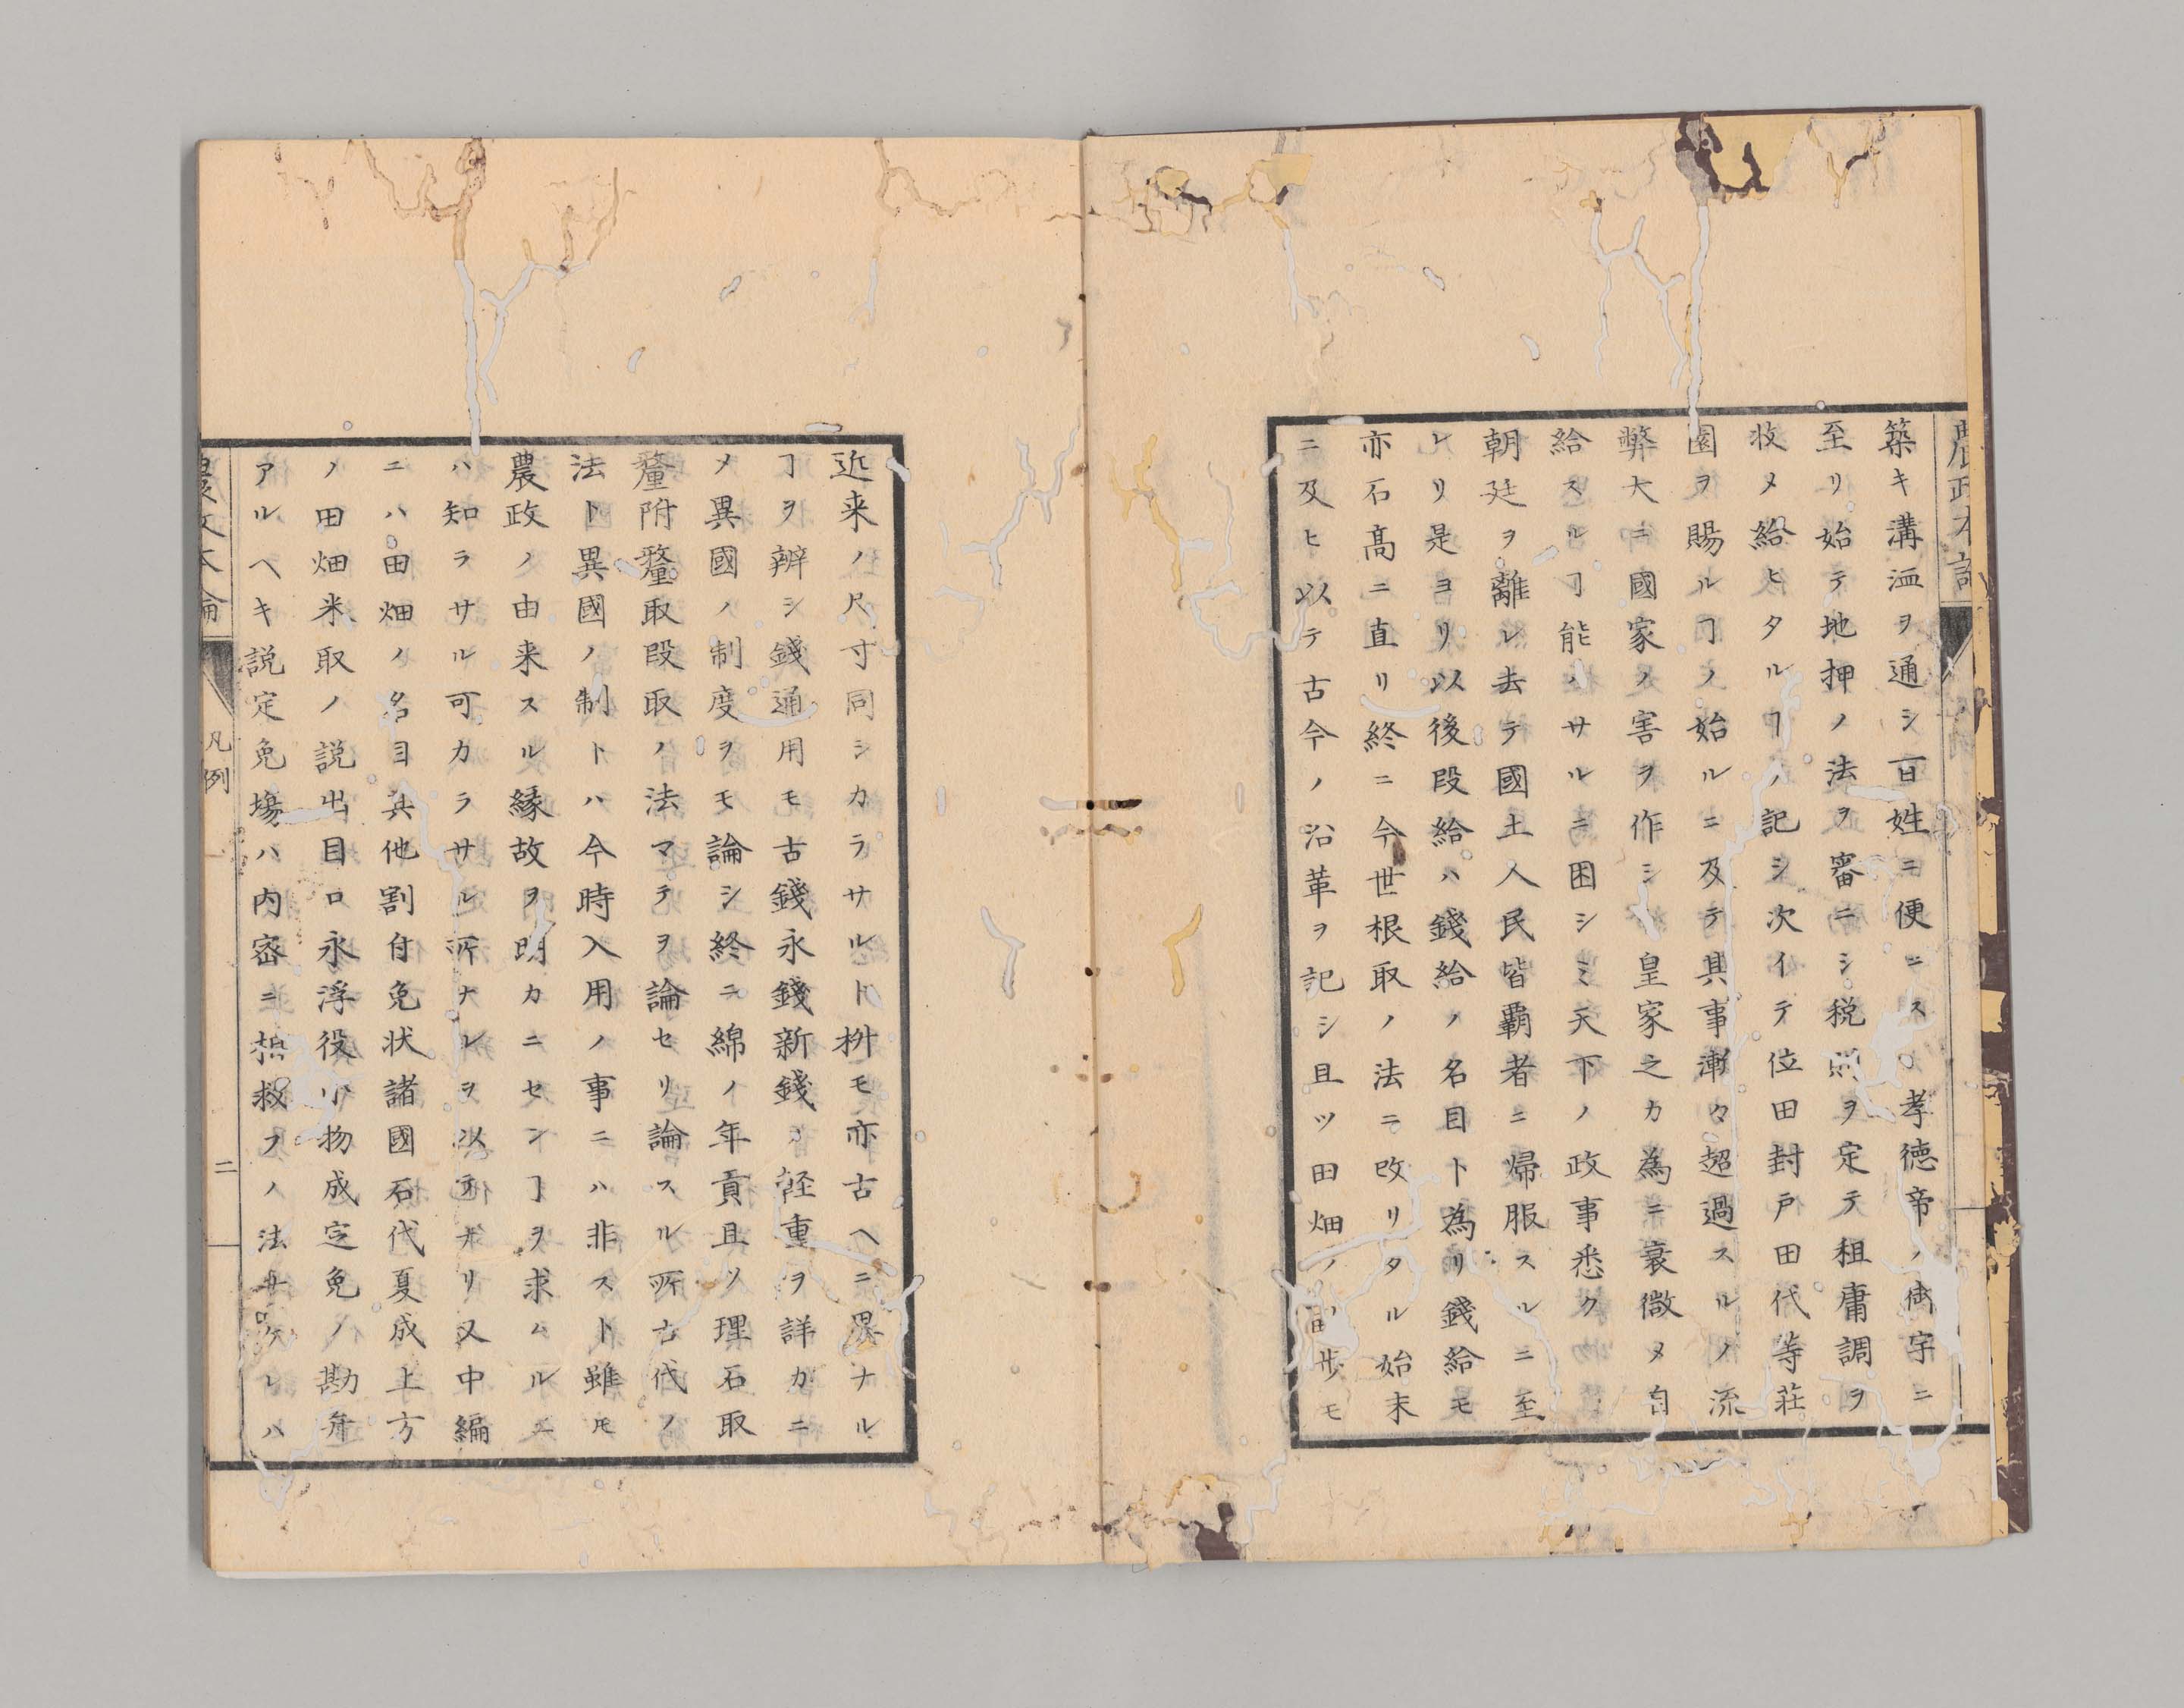 築キ溝洫ヲ通シ百姓ニ便ニス孝徳帝ノ御宇ニ
至リ始テ地押ノ法ヲ審ニシ税則ヲ定テ租庸調ヲ
收メ給ヒタルヿノ記シ次イテ位田封戸田代等莊
園ヲ賜ルヿノ始ルニ及テ其事漸々超過スルノ流
弊大ニ國家ノ害ヲ作シ皇家之カ為ニ衰微メ自
給スルヿ能ハサルニ困シミ天下ノ政事悉ク
朝廷ヲ離レ去テ國土人民皆覇者ニ歸服スルニ至
レリ是ヨリ以後段給ハ錢給ノ名目ト為リ錢給モ
亦石髙ニ直リ終ニ今世根取ノ法ニ改リタル始末
ニ及ヒ以テ古今ノ沿革ヲ記シ且ツ田畑ノ歩モ
近来ノ尺寸同シカラサルト枡モ亦古ヘニ異ナル
ヿヲ辨シ錢通用モ古錢永錢新錢ノ軽重ヲ詳カニ
メ異國ノ制度ヲモ論シ終ニ綿ノ年貢且ツ理石取
釐附釐取段取ノ法マテヲ論セリ論スル所古代ノ
法ト異國ノ制トハ今時入用ノ事ニハ非スト雖モ
農政ノ由来スル縁故ヲ明カニセンヿヲ求ムルニ
ハ知ラサル可カラサル所ナレヲ以テナリ又中編
ニハ田畑ノ名目其他割付免状諸國石代夏成上方
ノ田畑米取ノ説出目ロ永浮役小物成定免ノ勘弁
アルヘキ説定免場ハ内密ニ救フノ法ナケレハ
農政本論
凡例
二